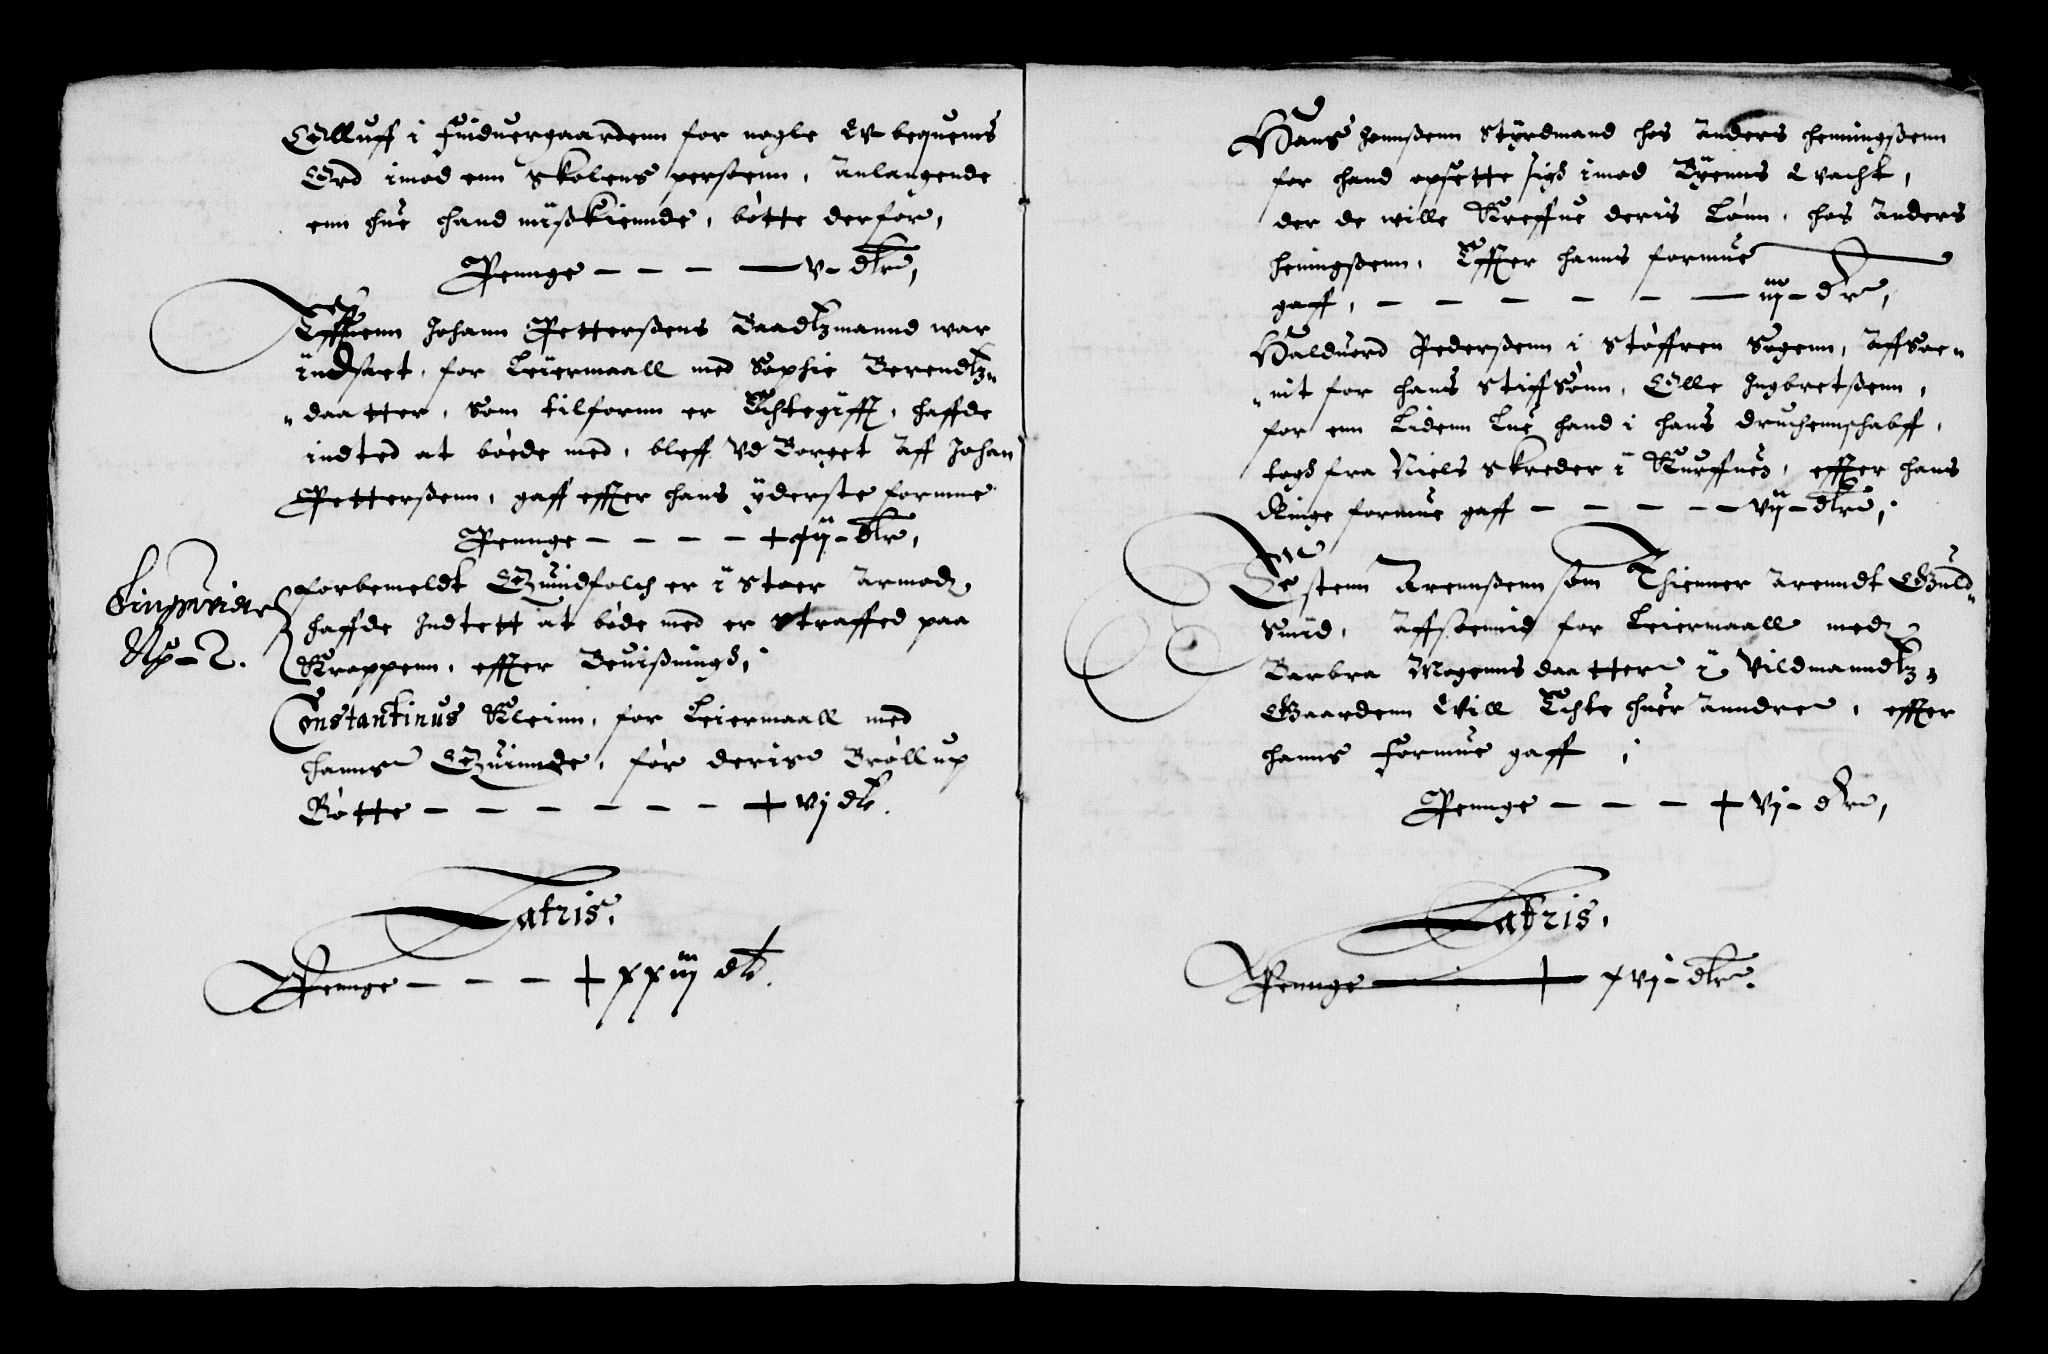 Olluff i Huiduergaardenn for nogle Vbequems
Ord imod enn Skolens persoenn, Anlangende
enn hue hand mißkiennde, bötte derfor,
Pennge – – – – v – dlr,
Effuenn Johann Petterßens Baadtzmannd war
indsaet, for Leiermaall med Sophie Berendtz
daatter, som tilfornn er Echtegifft, haffde
indted at böede med, bleff Vd Borget Aff Johan
Petterßenn, gaff effter hans yderste formue
Pennge – – – – xij – dlr,
forbemeldt Quindfolch er i Stoer Armod,
haffde Indtett at böde med er Straffed paa
Kroppenn, effter Beuißningh,
Constantinus Kleinn, for Leiermaall med
hanns Quinnde, för deris Bröllup
Bötte – – – – – – vj dlr.
Latris.
Pennge – – – xxiij dlr.
Hans Jennßenn Styrdmand hos Anders Henningßenn
for hand opsette sigh imod Byenns Vacht,
der de wille Kreffue deris Lönn, hos Anders
Heningßenn, Effter hanns formue
gaff, – – – – – – iij – dlr,
Halduord Pederßenn i Stöffren Sogenn, Affsoe
nit for hans Stiffsönn, Olle Ingbretßenn,
for enn Lidenn Lue hand i hans druchennschabff,
togh fra Niels Skreder i Kurffuen, effter hans
Ringe formue gaff – – – – – vij – dlr,
Testenn Arennßenn som Thienner Arenndt Guld
Smid, Affsoennid for Leiermaall med
Barbra Mogenns daatter i Vildmanndtz
Gaardenn Vill Echte huer Anndre, effter
hanns formue gaff,
Pennge – – – vj – dlr,
Latris.
Pennge – xvj – dlr.